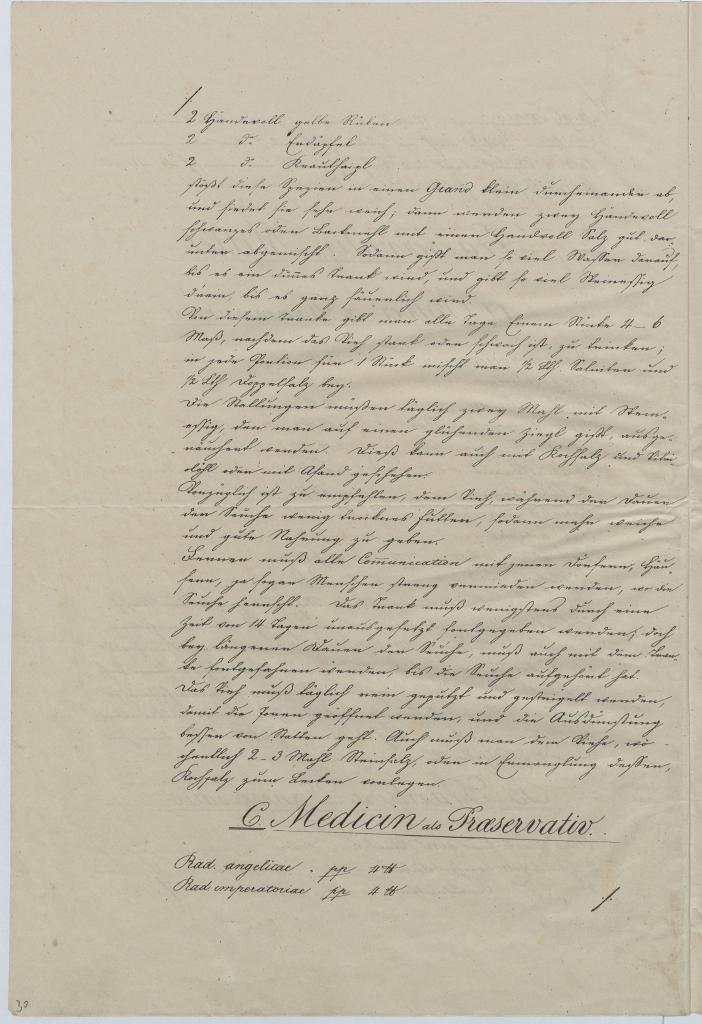 /.
2 Händevoll gelbe Rüben
2 do. Erdäpfel
2 do. Krauthaipl
stößt diese Spezien in einen Grand klein durcheinander ab,
und siedet sie sehr weich; dann werden zwey Händevoll
schwarzes oder Backmehl mit einer Handvoll Salz gut dar-
unter abgemischt. Sodann gießt man so viel Wasser darauf,
bis es ein dünnes Trank wird, und gibt so viel Weinessig
darein, bis es ganz säuerlich wird.
Von diesem Tranke gibt man alle Tage Einem Rinde 4–6
Maß, nachdem das Vieh stark oder schwach ist, zu trinken;
in jede Portion für 1 Stück mischt man ½ Lth. Saliter und
½ Lth Doppelsalz bey.
Die Stallungen müßen täglich zwey Mahl mit Wein-
essig, den man auf einen glühenden Ziegl gißt, ausge-
räuchert werden. Dieß kann auch mit Kochsalz und Vitri-
olöhl oder mit Asand geschehen.
Vorzüglich ist zu empfehlen, dem Vieh, während der Dauer
der Seuche wenig trocknes Futter, sodann mehr weiche
und gute Nahrung zu geben.
Ferner muß alle Comunication mit jenen Dörfern, Häu-
sern, ja sogar Menschen streng vermieden werden, wo die
Seuche herrscht. Das Trank muß wenigstens durch eine
Zeit von 14 Tagen unausgesetzt fortgegeben werden; doch
bey längerer Dauer der Seuche, muß auch mit dem Tran-
ke fortgefahren werden, bis die Seuche aufgehört hat.
Das Vieh muß täglich rein geputzt und gestriegelt werden,
damit die Poren geöffnet werden, und die Ausdünstung
besser von Statten geht. Auch muß man dem Viehe, wö-
chentlich 2–3 Mahl Steinsalz, oder in Ermanglung dessen,
Kochsalz zum Lecken vorlegen.
C. Medicin als Præservativ.
Rad. angelicae . pp 4 ℔
Rad. imperatoriae pp 4 ℔
/.